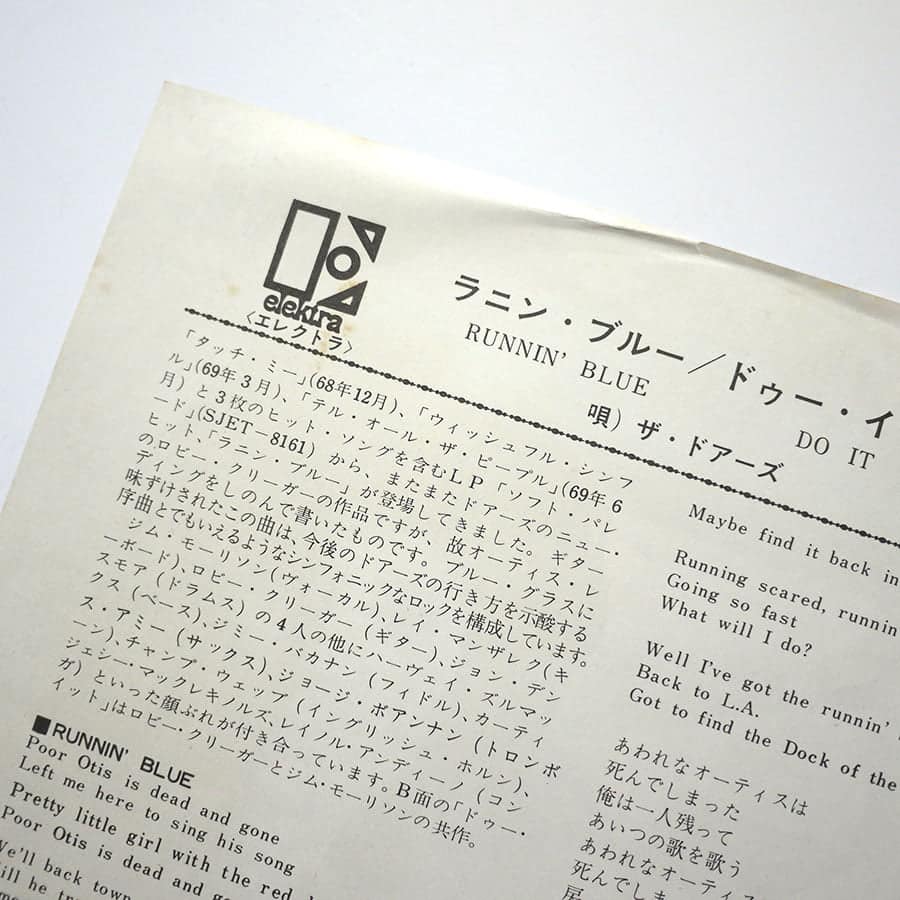 elektra
〈エレクトラ〉
ラニン・ブルー／ドゥー・イ
RUNNIN' BLUE
DO IT
唄）ザ・ドアーズ
「タッチ・ミー」(68年12月)、「ウィッシュフル・シンフ
ル」(69年3月)、「テル・オール・ザ・ピープル」(69年6
月)と3枚のヒット・ソングを含むLP「ソフト・パレ
ード」(SJET—8161)から、またまたドアーズのニュー・
ヒット、「ラニン・ブルー」が登場してきました。ギター
のロビー・クリーガーの作品ですが、故オーティス・レ
ディングをしのんで書いたものです。ブルー・グラスに
味ずけされたこの曲は、今後のドアーズの行き方を示酸する
序曲とでもいえるようなシンフォニックなロックを構成しています。
ジム・モーリソン(ヴォーカル)、レイ・マンザレク(キ
ーボード)、ロビー・クリーガー(ギター)、ジョン・デン
スモア(ドラムス)の4人の他にハーヴェイ・ズルマッ
クス(ベース)、ジミー・バカナン(フィドル)、カーティ
ス・アミー(サックス)、ジョージ・ボアンナン(トロンボ
ーン)、チャンプ・ウェッブ(イングリッシュ・ホルン)、
ジェシー・マックレキノルズ、レイノル・アンディーノ(コン
ガ)といった顔ぶれが付き合っています。B面の「ドゥー・
イット」はロビー・クリーガーとジム・モーリソンの共作。
■RUNNIN' BLUE
Poor Otis is dead and gone
Left me here to sing his song
Pretty little girl with the red
Poor Otis is dead and
back town
Maybe find it back in
Running scared, runnin
Going so fast
What will I do?
Well I've got the runnin'
Back to L.A.
Got to find the Dock of the
あわれなオーティスは
死んでしまった
俺は一人残って
あいつの歌を歌う
あわれなオーティス
死んでしま